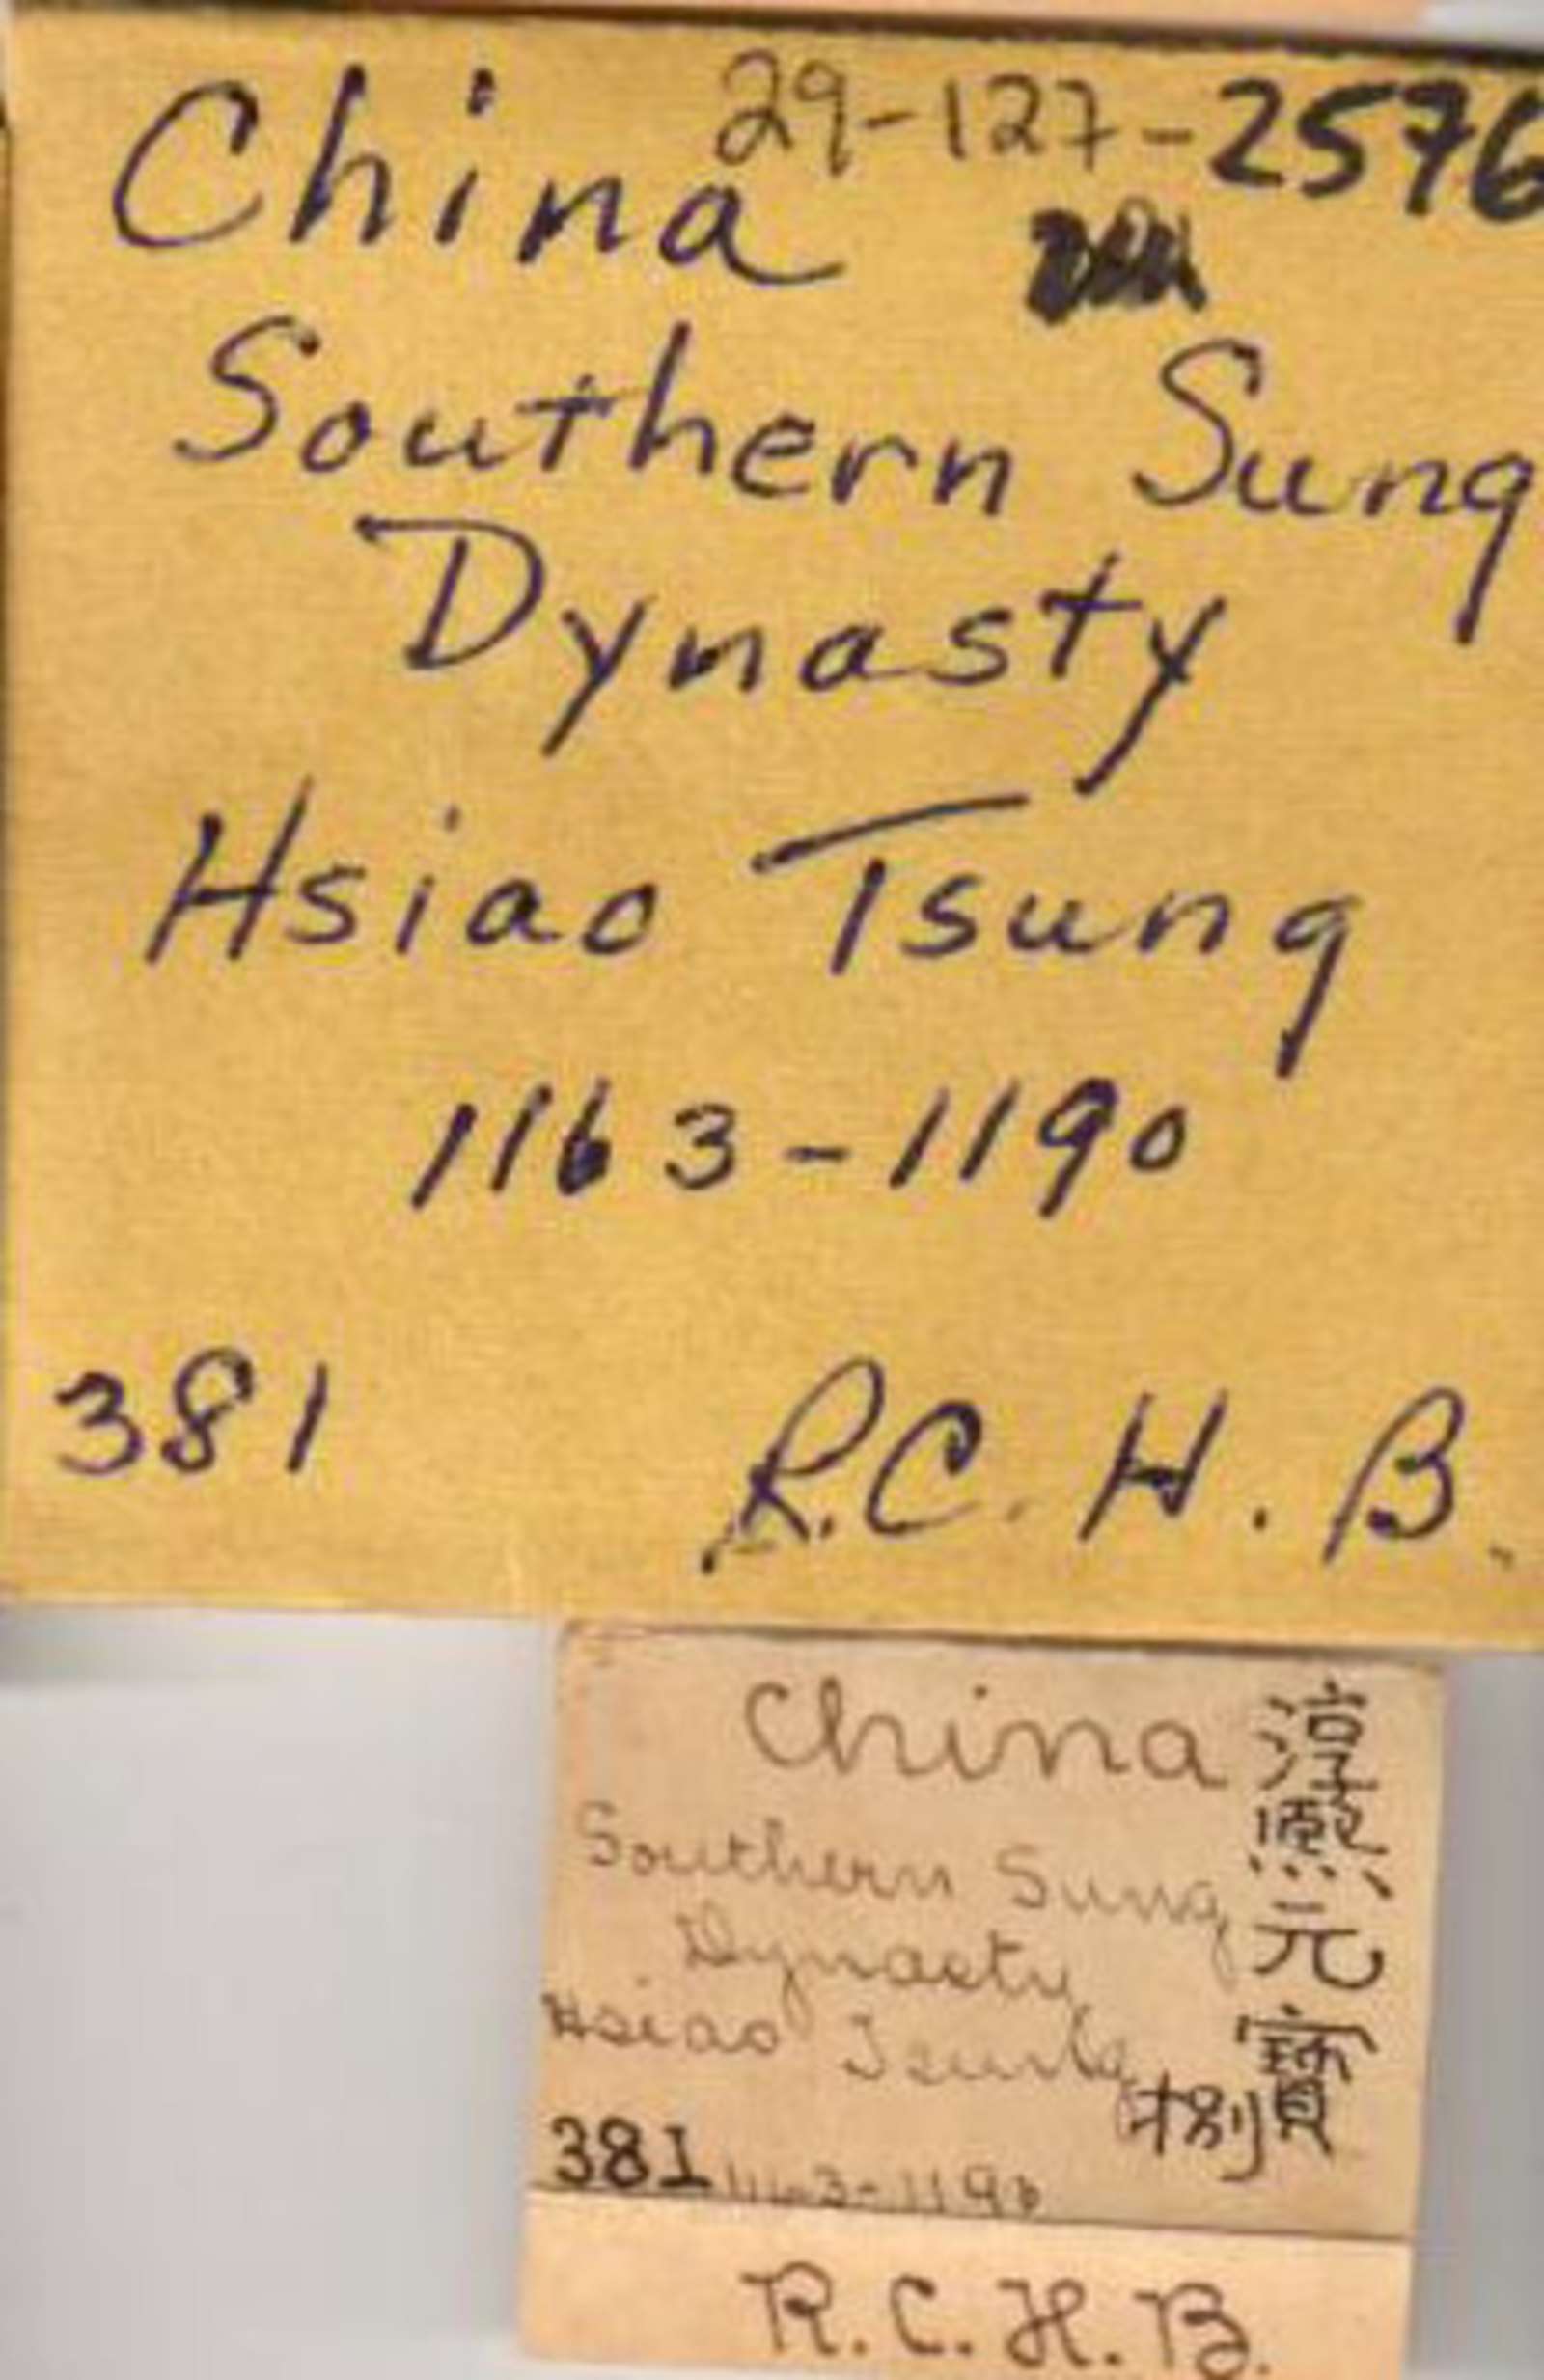 29-127-2576
China
Southern Sung
Dynasty
Hsiao Tsung
1163-1190
381 R.C.H.B.
China
Southern Sung
Dynasty
Hsiao Tsung
381 1163-1190
淳熈元寶
捌
R.C.H.B.